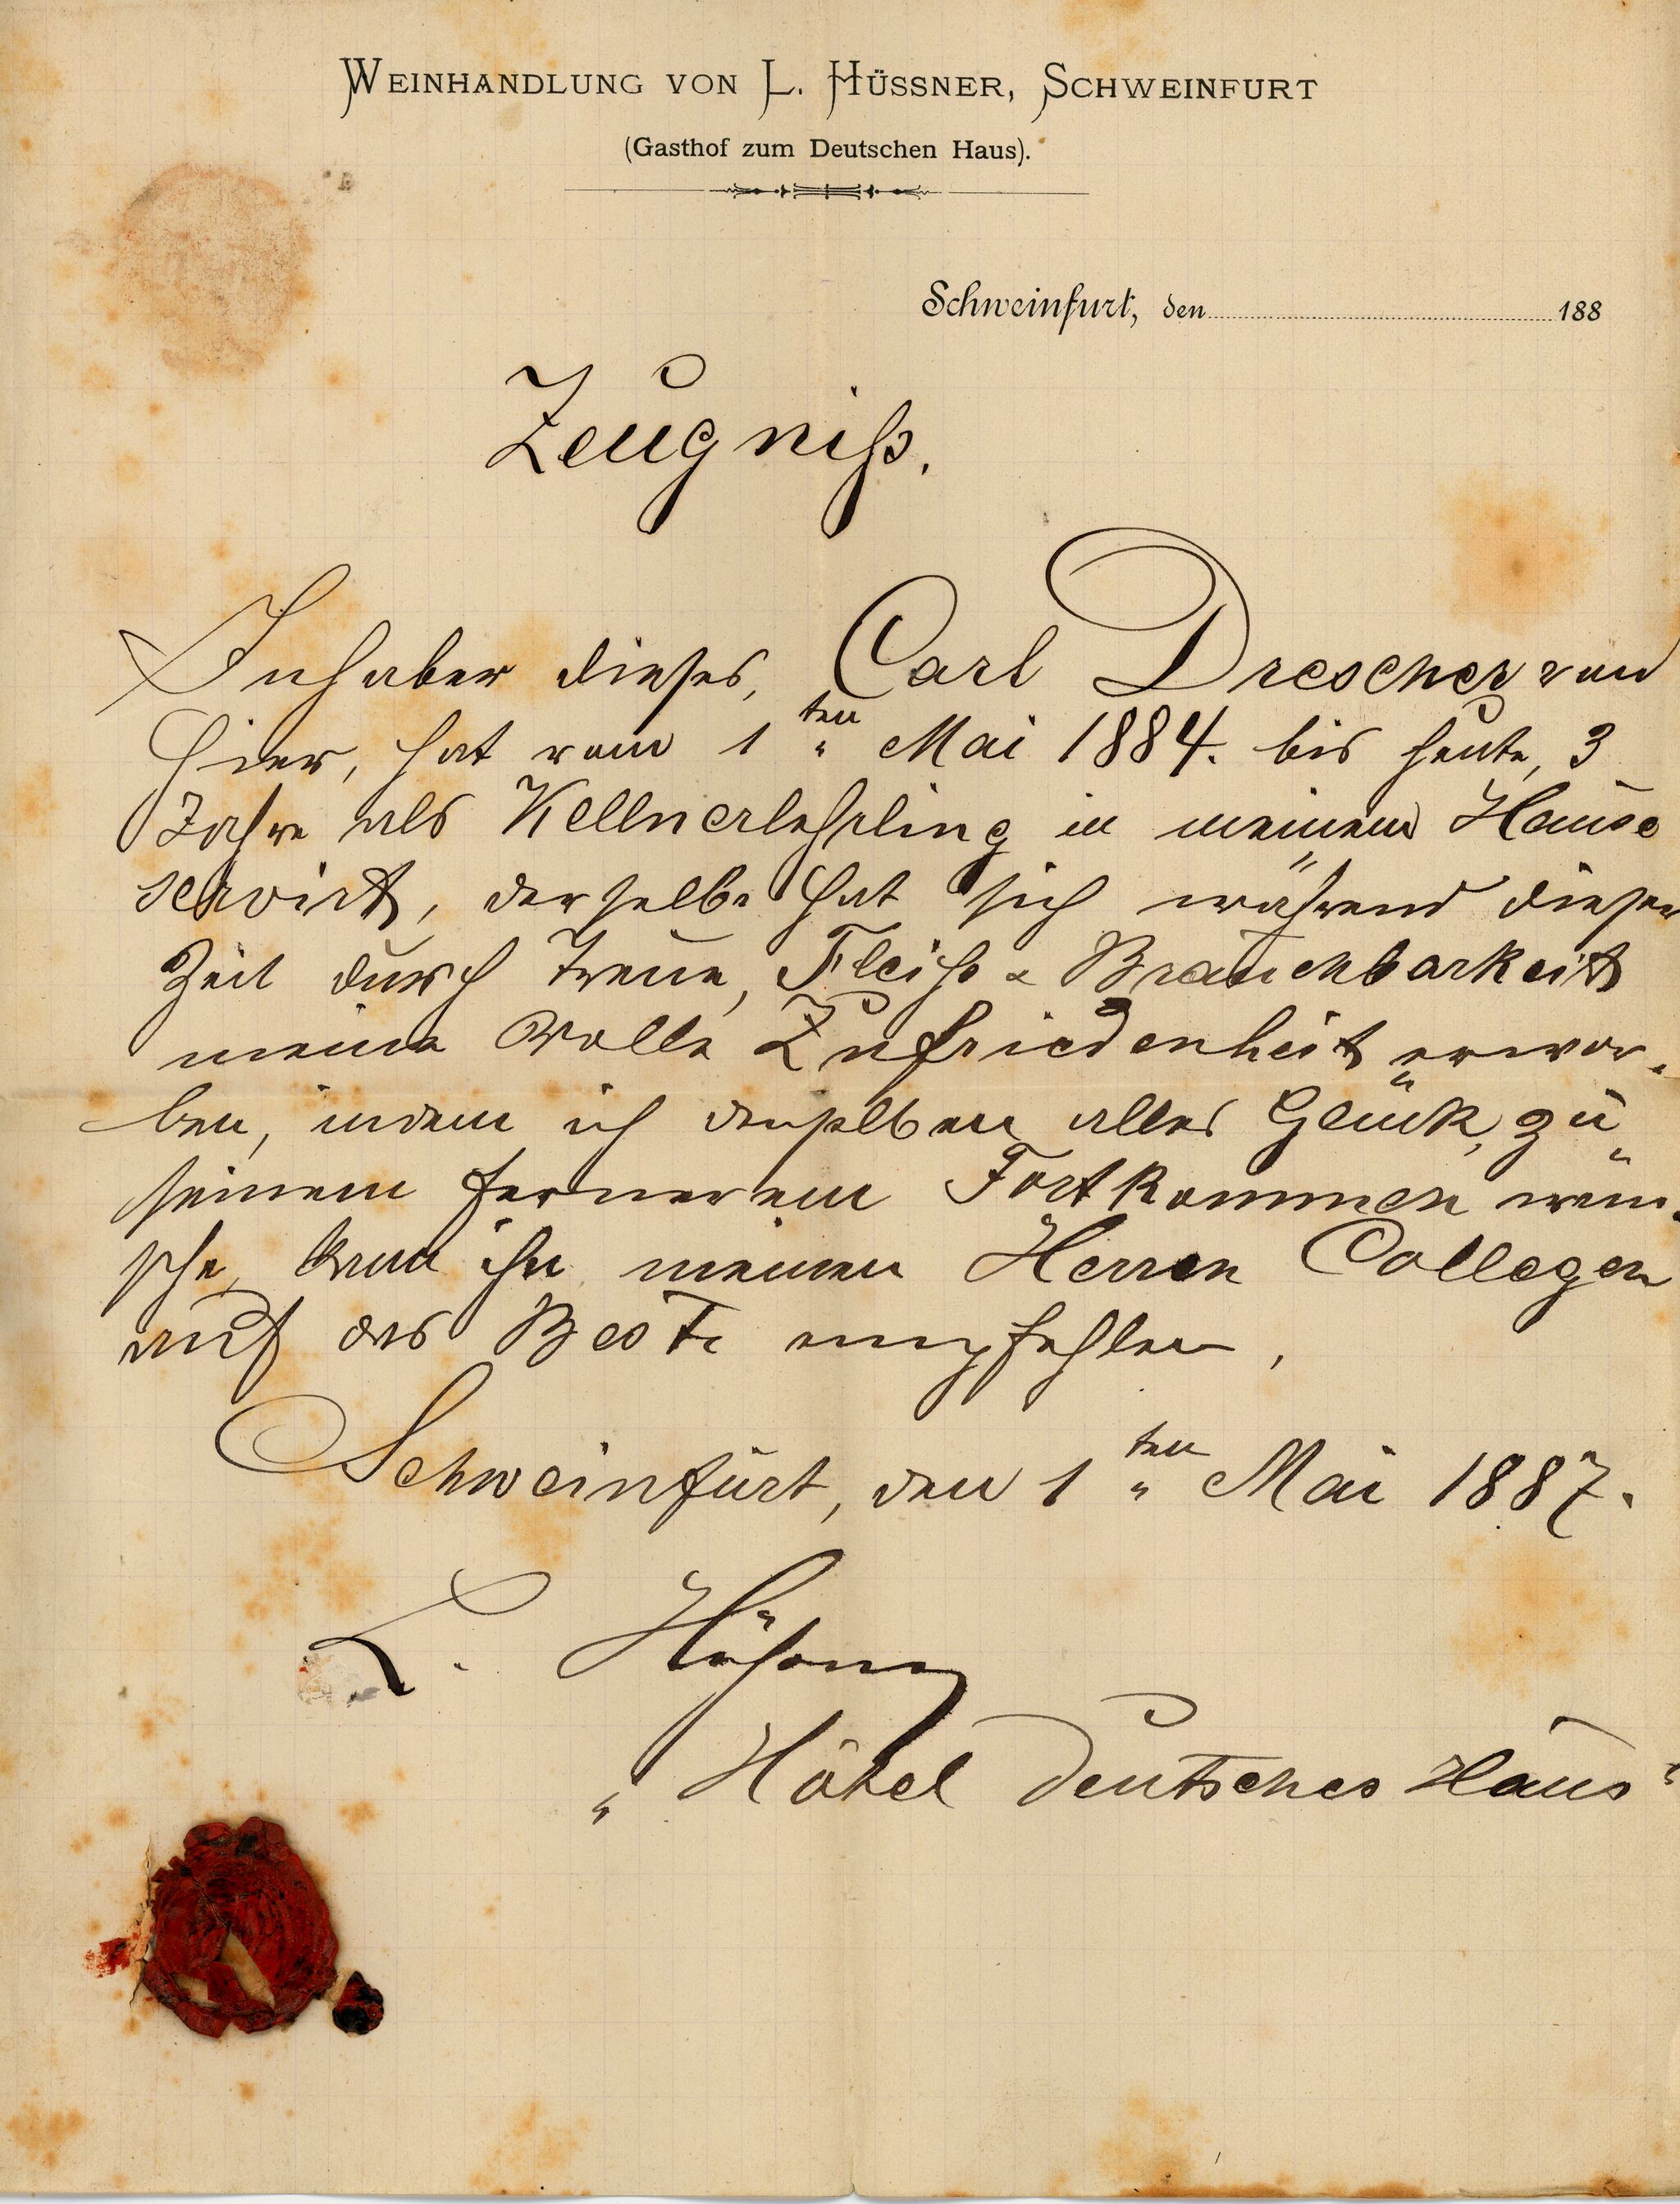 WEINHANDLUNG VON L. HÜSSNER, SCHWEINFURT
(Gasthof zum Deutschen Haus).
Schweinfurt, den 188
Zeugniß.
Inhaber dieses, Carl Drescher von
hier, hat vom 1ten Mai 1884. bis heute, 3
Jahre als Kellnerlehrling in meinem Hause
servirt, derselbe hat sich während dieser
Zeit durch Treue, Fleiß & Brauchbarkeit
meine volle Zufriedenheit erwor-
ben, indem ich demselben alles Glück, zu
seinem ferneren Fortkommen wün-
sche, kann ihn meinen Herren Collegen
auf das Beste empfehlen,
Schweinfurt, den 1ten Mai 1887.
L. Hüßner
"Hôtel Deutsches Haus"